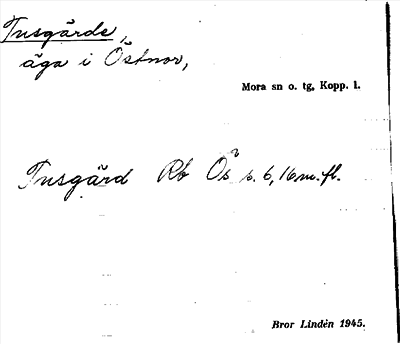 Tusgårde,
äga i Östnor,
Mora sn o. tg, Kopp. l.
Tusgård Rb Ös s. 6, 16 m. fl.
Bror Lindén 1945.